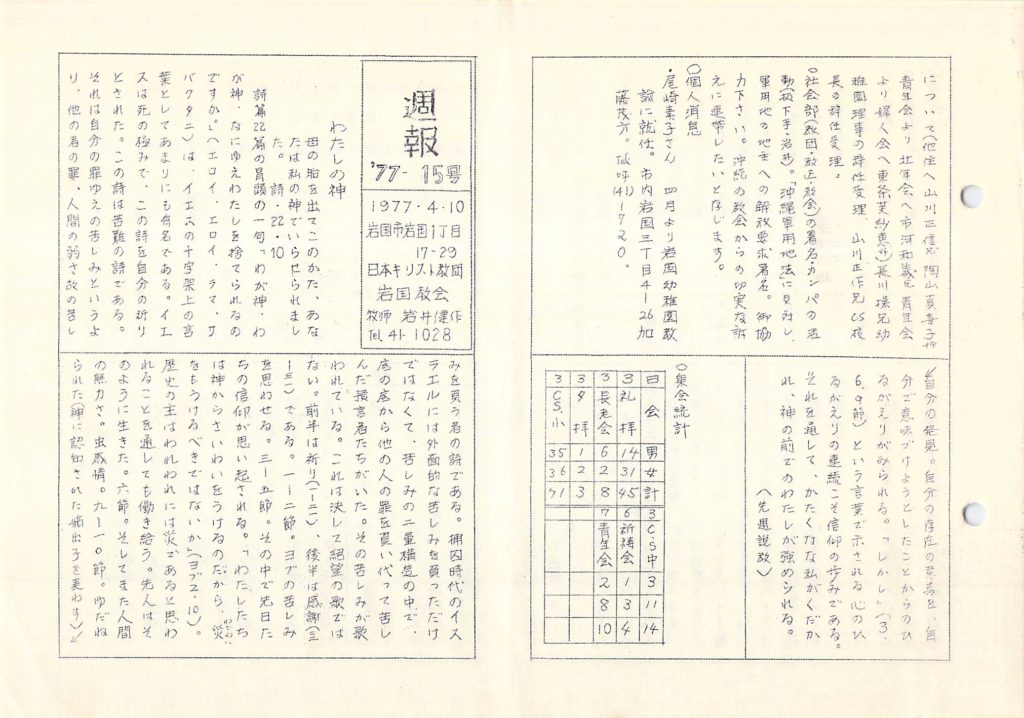 週報
'77-15号
1977・4・10
岩国市岩国1丁目
17-29
日本キリスト教団
岩国教会
牧師 岩井健作
Tel. 41-1028
わたしの神
母の胎を出てこのかた、あな
たは私の神でいらせられまし
た。 詩・22・10
詩篇22篇の冒頭の一句「わが神、わ
が神、なにゆえわたしを捨てられるの
ですか。」(エロイ、エロイ、ラマ、サ
バクタニ)は、イエスの十字架上の言
葉としてあまりにも有名である。イエ
スは死の極みで、この詩を自分の祈り
とされた。この詩は苦難の詩である。
それは自分の罪ゆえの苦しみというよ
り、他の者の罪、人間の弱さ故の苦し
みを負う者の詩である。捕囚時代のイス
ラエルには外面的な苦しみを負っただけ
ではなくて、苦しみの二重構造の中で、
底の底から他の人の罪を負い代って苦し
んだ預言者たちがいた。その苦しみが歌
われている。これは決して絶望の歌では
ない。前半は祈り(一-二二)、後半は感謝(三
一-三二)である。一-二節。ヨブの苦しみ
を思わせる。三-五節。その中で先日た
ちの信仰が思い起される。「わたしたち
は神からさいわいをうけるのだから、災
わざわい
をもうけるべきではないか」(ヨブ2.10)。
歴史の主はわれわれには災であると思わ
れることを通しても働き給う。先人はそ
のように生きた。六節。そしてまた人間
の無力さ。虫感情。九-一〇節。ゆだね
られた(神に認知された嫡出子を表わす)↙
について(他住へ山川正信兄 陶山真寿子姉
青年会より壮年会へ市河和義兄 青年会
より婦人会へ東條 長川操兄幼
稚園理事の辞任受理、山川正作兄CS校
長の辞任受理。
○社会部(教団 教会)の署名・カンパの活
動 「沖縄軍用地法に反対し、
軍用地の地主への解放要求署名」御協
力下さい。沖縄の教会からの切実な訴
えに連帯したいと存じます。
○個人消息
・尾崎素子さん 四月より岩国幼稚園教
諭に就任。市内岩国三丁目4-26加
藤茂方。呼(41)1720。
↙自分の発見。自分の存在の意義を、自
分で意味づけようとしたことからのひ
るがえりがみられる。「しかし」(3.
6.9節)という言葉で示される心のひ
るがえりの連続こそ信仰の歩みである。
それを通して、かたくなな私がくだか
れ、神の前でのわたしが強められる。
(先週説教)
○集会統計
日 会 男 女 計
3 礼拝 14 31 45
3 長老会 6 2 8
3 夕拝 1 2 3
3 C.S.小 35 36 71
3 C.S中 3 11 14
6 祈祷会 1 3 4
7 青年会 2 8 10